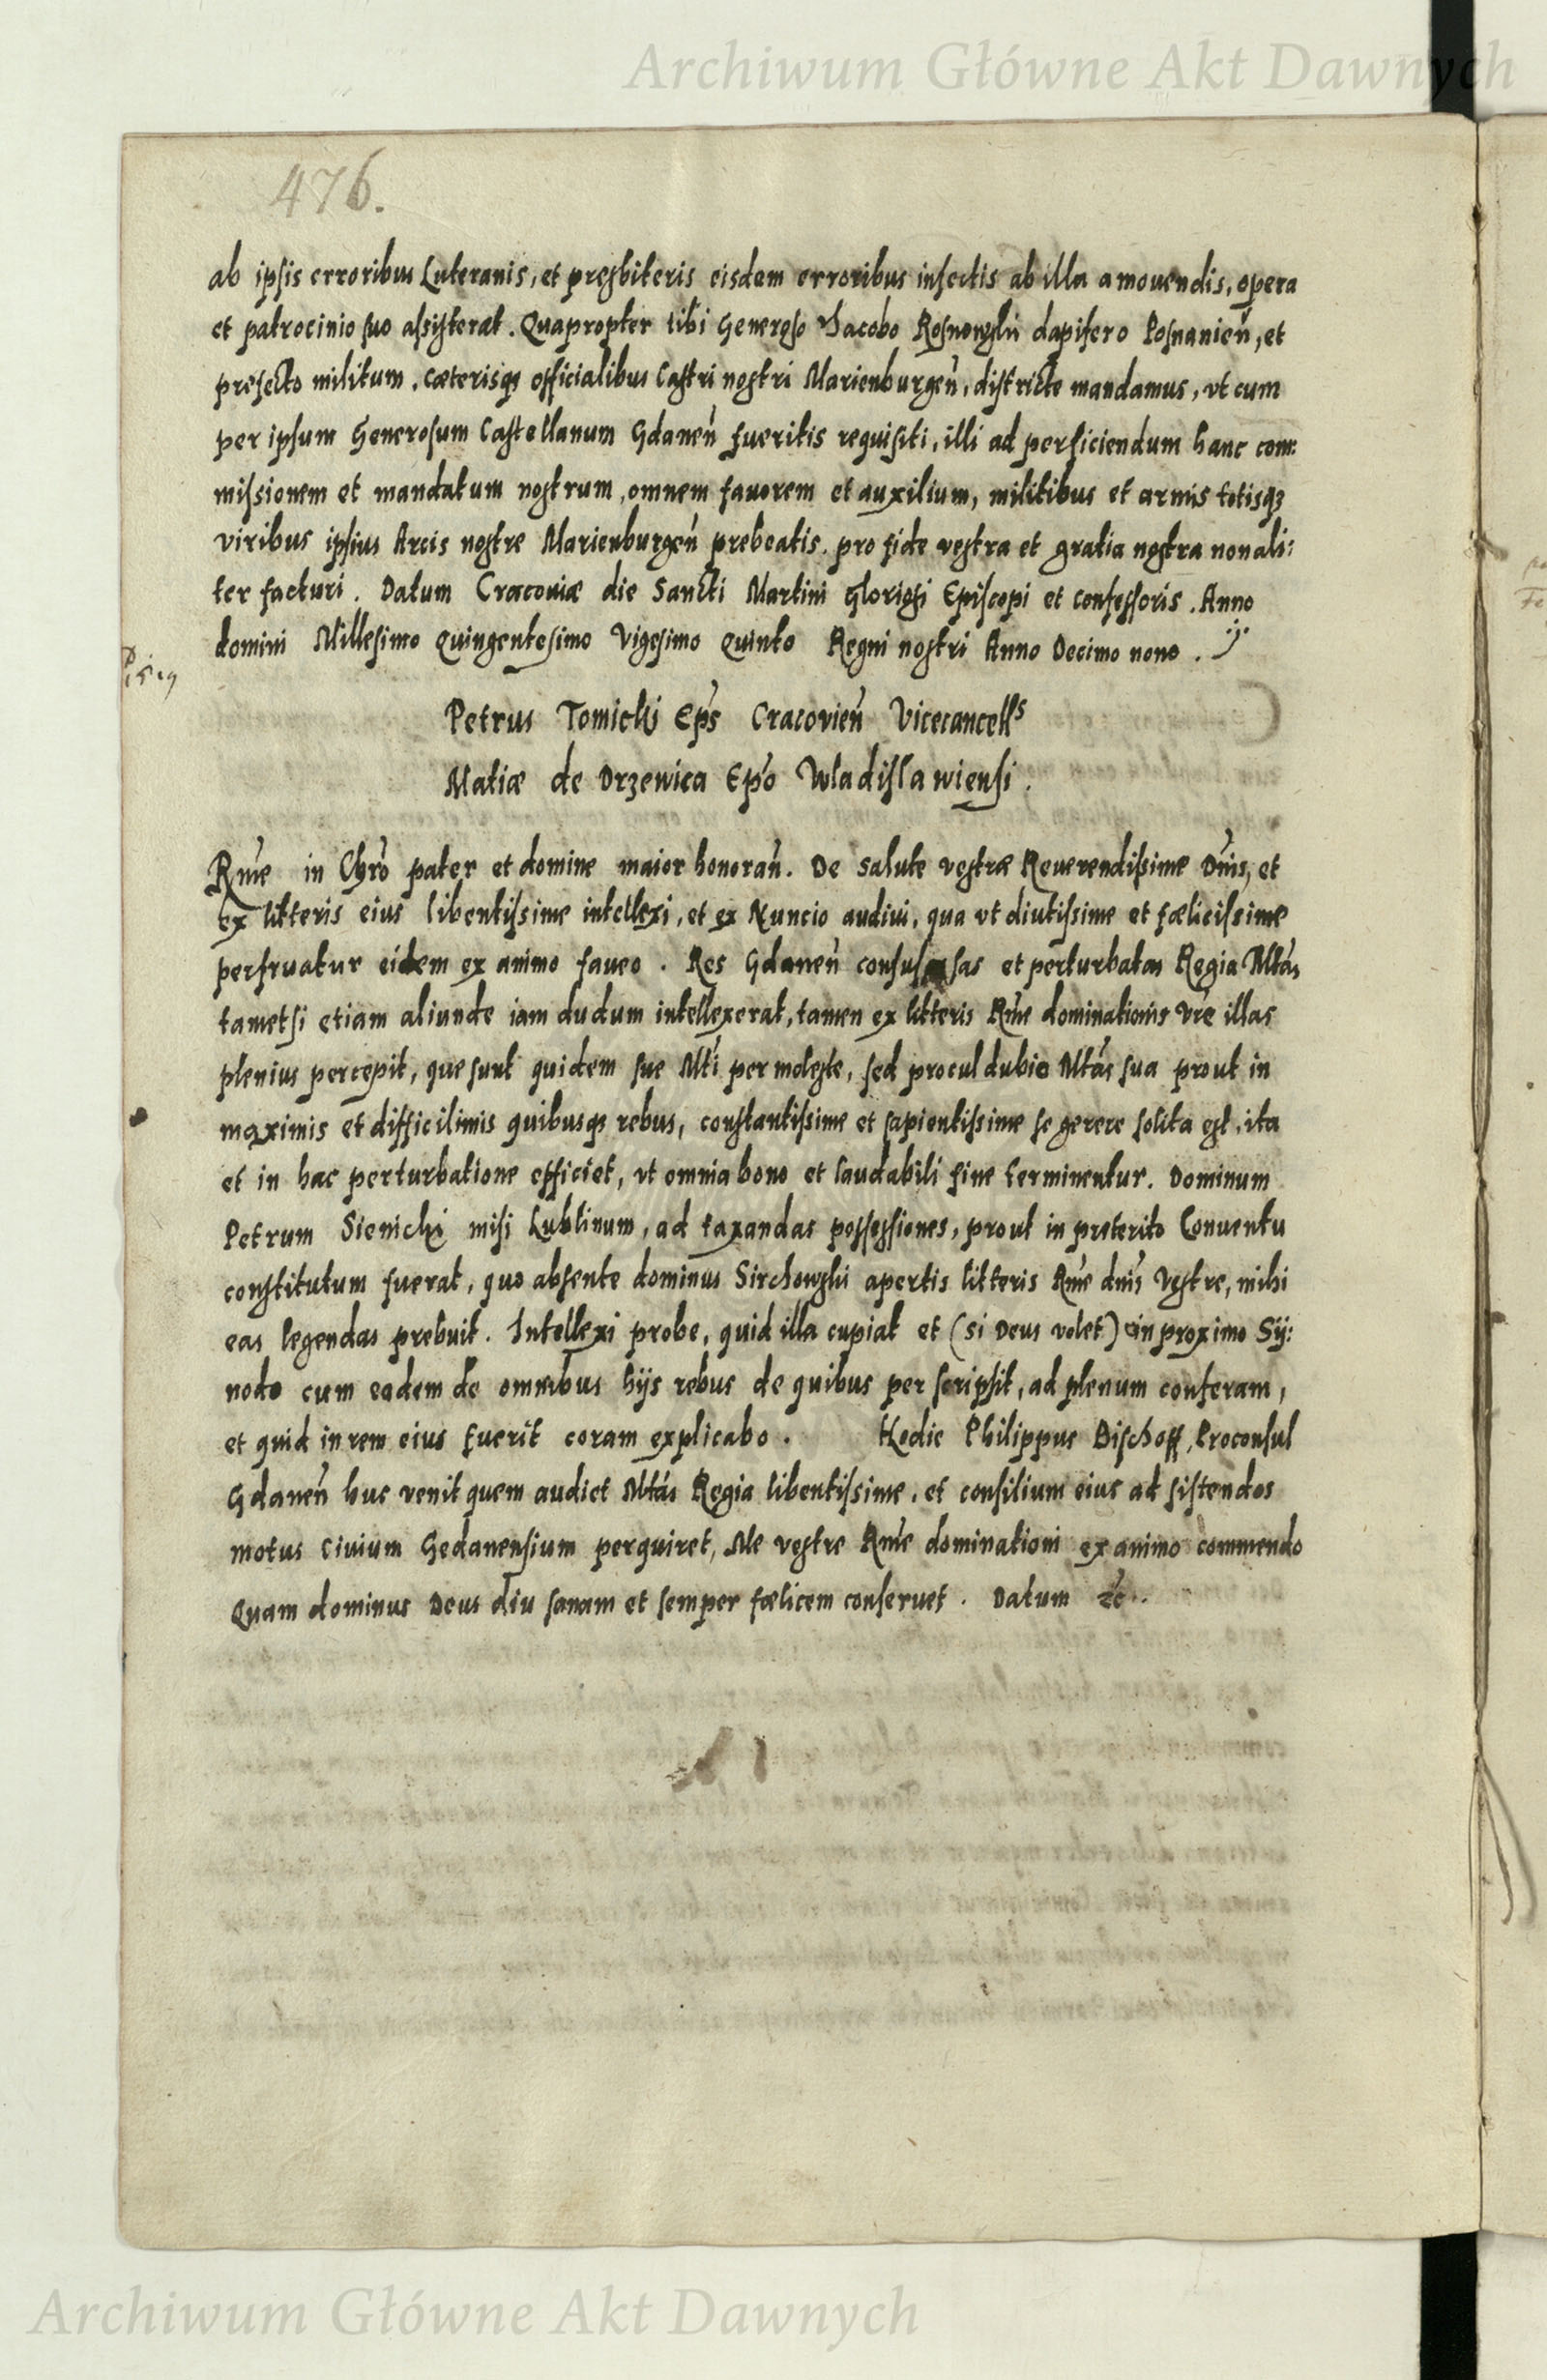 Archiwum Główne Akt Dawnych
476.
ab ipsis erroribus Luteranis, et presbiteris eisdem erroribus infectis ab illa amouendis, opera
et patrocinio suo assisterat. Quapropter tibi Generoso Jacobo Rosnowski dapifero Posnanień, et
prefecto militum, cæterisq officialibus Castri nostri Marienburgeń, districte mandamus, vt cum
per ipsum Generosum Castellanum Gdaneń fueritis requisiti, illi ad perficiendum hanc com:
missionem et mandatum nostrum, omnem fauorem et auxilium, militibus et armis totisqz
viribus ipsius Arcis nostre Marienburgeń prebeatis, pro fide vestra et gratia nostra non ali:
ter facturi. Datum Cracouiæ die Sancti Martini gloriosi Episcopi et confessoris. Anno
domini Millesimo Quingentesimo Vigesimo Quinto Regni nostri Anno Decimo nono.
Petrus Tomicki Eps Cracovień Vicecancells
Matiæ de Drzewica Epo Wladislawiensi.
Rme in Chro pater et domine maior honorań. De salute vestræ Reuerendissime Dnis, et
ex litteris eius libentissime intellexi, et ex Nuncio audiui, qua vt diutissime et fœlicissime
perfruatur eidem ex animo faueo. Res Gdaneń confusas et perturbatas Regia Mtas,
tametsi etiam aliunde iam dudum intellexerat, tamen ex litteris Rme dominationis vre illas
plenius percepit, que sunt quidem sue Mti permoleste, sed procul dubio Mtas sua prout in
maximis et difficilimis quibusq rebus, constantissime et sapientissime se gerere solita est, ita
et in hac perturbatione efficiet, vt omnia bono et laudabili fine terminentur. Dominum
Petrum Sienicki misi Lublinum, ad taxandas possessiones, prout in preterito Conuentu
constitutum fuerat, quo absente dominus Sirchowski apertis litteris Rme dnis Vestre, mihi
eas legendas prebuit. Intellexi probe, quid illa cupiat et (si Deus volet) in proximo Sij:
nodo cum eadem de omnibus hijs rebus de quibus perscripsit, ad plenum conferam,
et quid in rem eius fuerit coram explicabo. Hodie Philippus Bischoff, Proconsul
Gdaneń huc venit quem audiet Mtas Regia libentissime, et consilium eius ad sistendos
motus Ciuium Gedanensium perquiret, Me vestre Rme dominationi ex animo commendo
Quam dominus Deus diu sanam et semper fœlicem conseruet. Datum etc.
Archiwum Główne Akt Dawnych